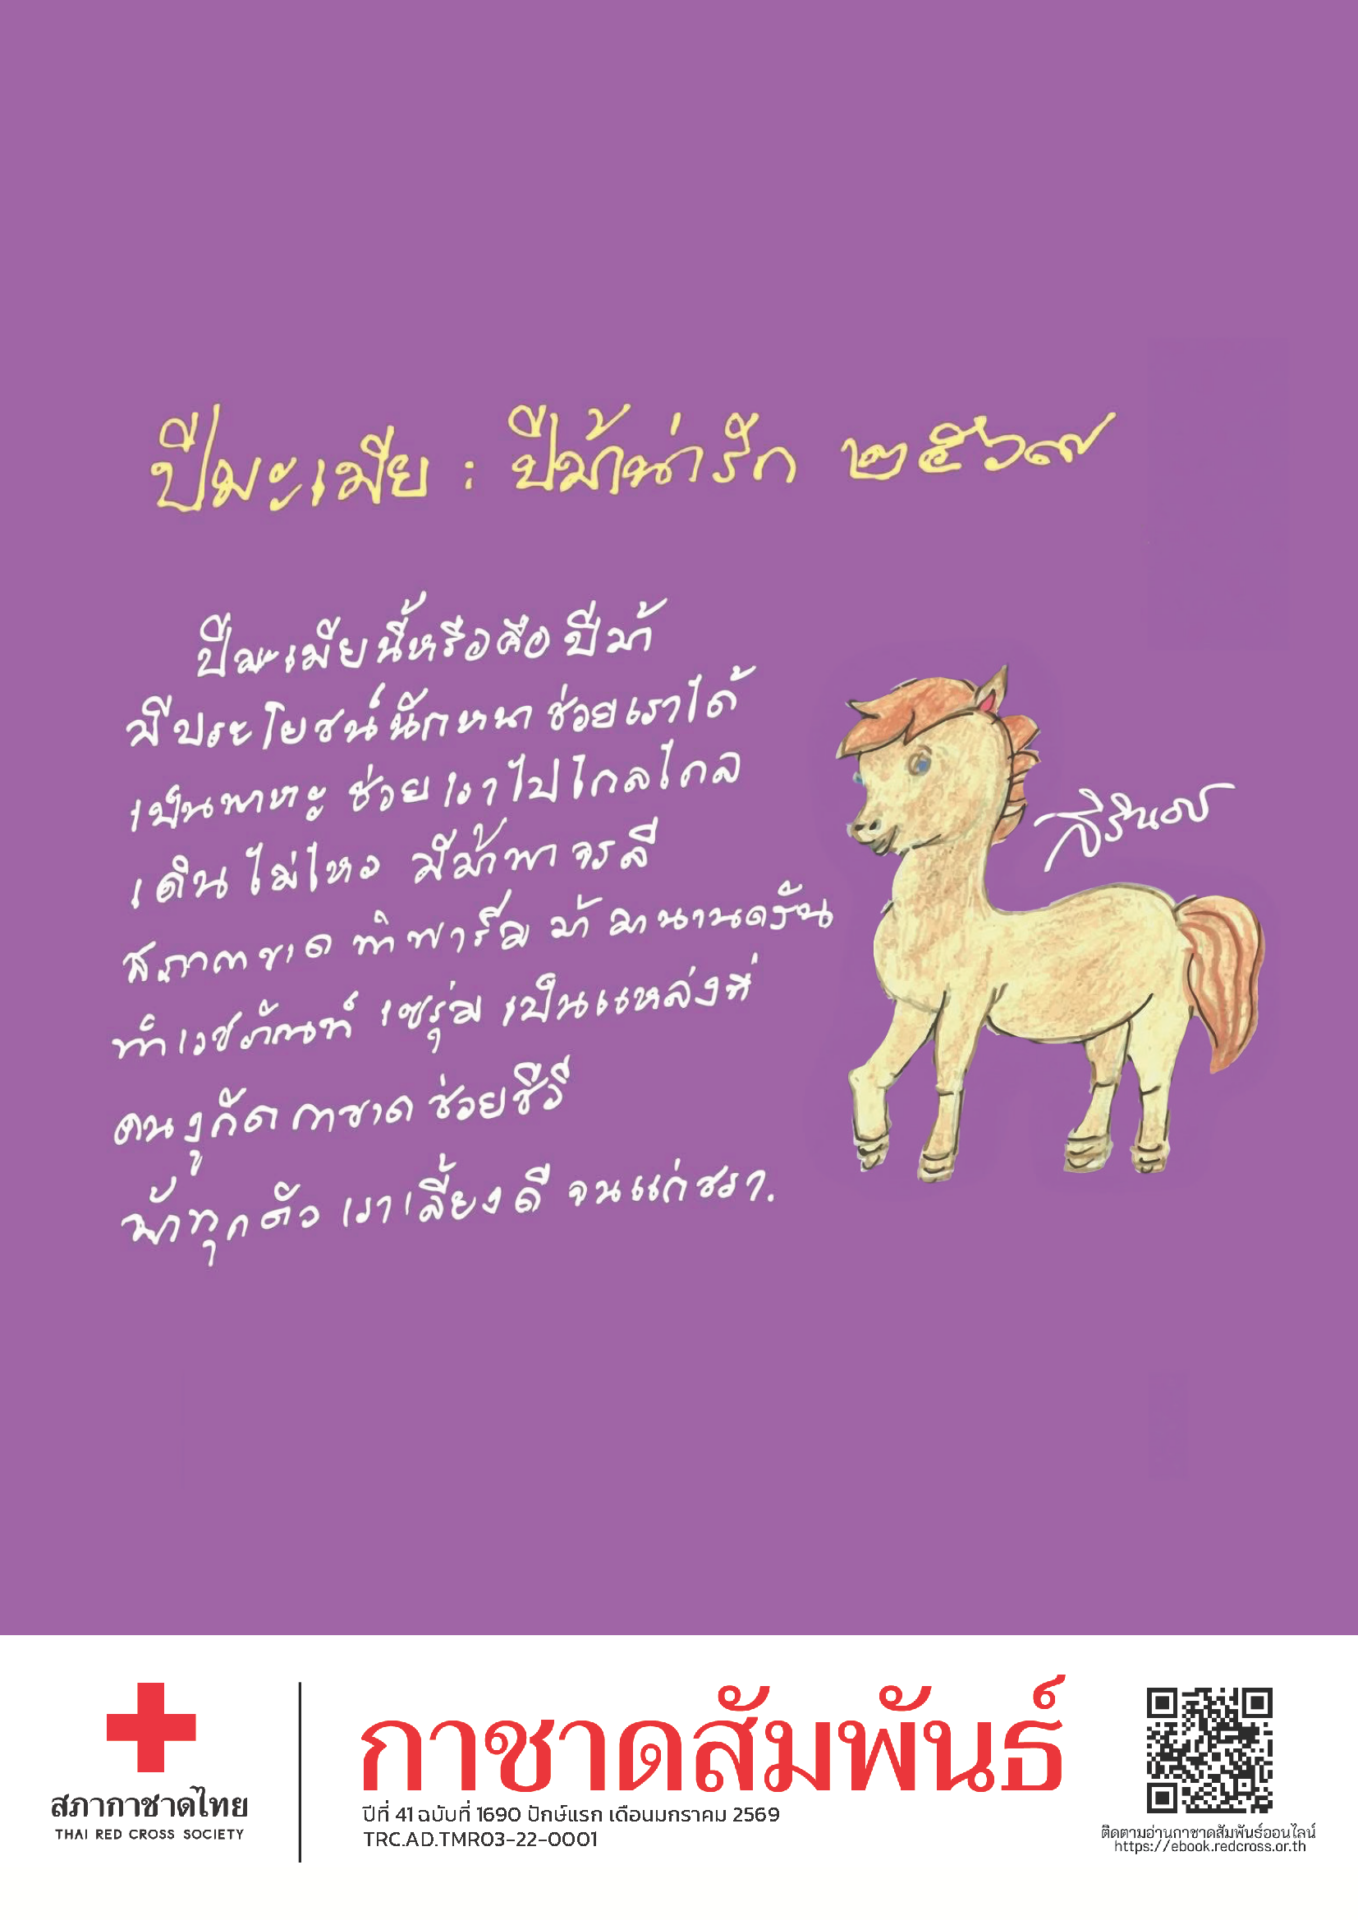 ปีมะเมีย : ปีม้าน่ารัก ๒๕๖๙
ปีมะเมียนี้หรือคือปีม้า
มีประโยชน์นักหนา ช่วยเราได้
เป็นพาหะ ช่วยเราไปไกลไกล
เดินไม่ไหว มีม้าพาจรลี
สภากาชาด ทำฟาร์ม ม้ามานานครัน
ทำเวชภัณฑ์ เซรุ่ม เป็นแหล่งที่
คนงูกัด กาชาด ช่วยชีวี
ม้าทุกตัว เราเลี้ยงดี จนแก่ชรา.
สิรินธร
สภากาชาดไทย
THAI RED CROSS SOCIETY
กาชาดสัมพันธ์
ปีที่ 41 ฉบับที่ 1690 ปักษ์แรก เดือนมกราคม 2569
TRC.AD.TMR03-22-0001
ติดตามอ่านกาชาดสัมพันธ์ออนไลน์
https://ebook.redcross.or.th